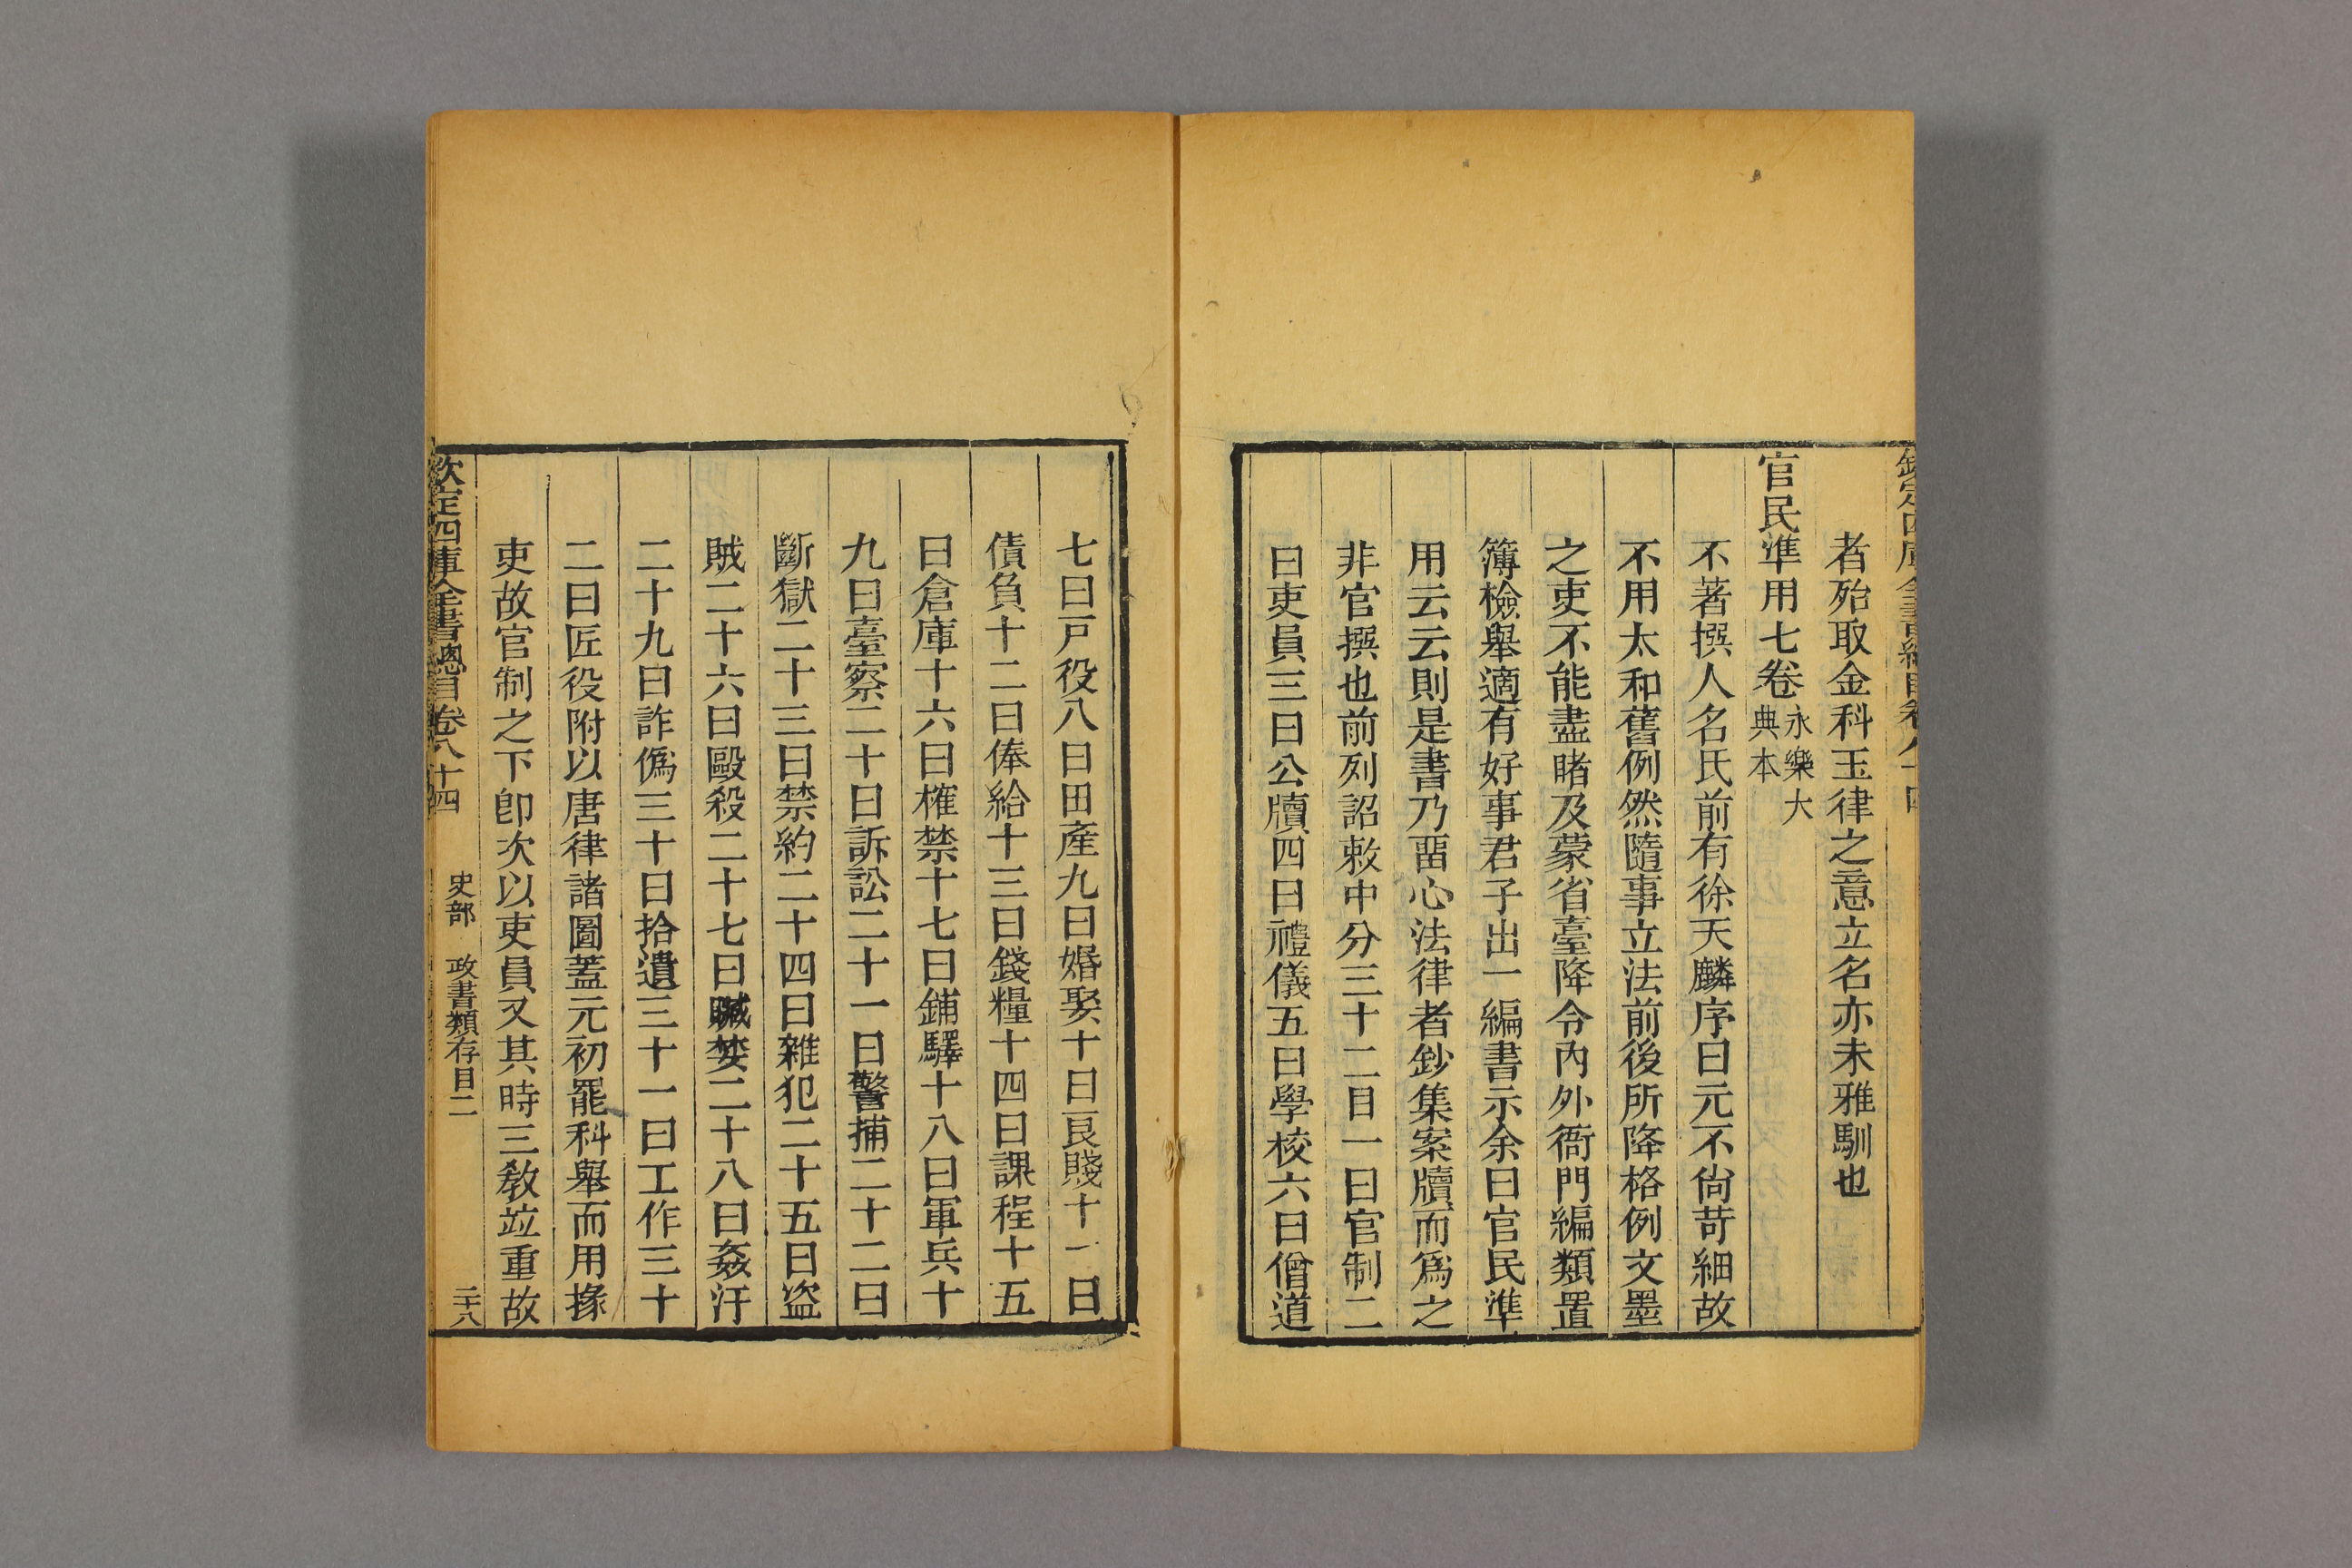 欽定四庫全書總目卷八十四
者殆取金科玉律之意立名亦未雅馴也
官民準用七卷永樂大典本
不著撰人名氏前有徐天麟序曰元不尙苛細故
不用太和舊例然隨事立法前後所降格例文墨
之吏不能盡睹及蒙省臺降令內外衙門編類置
簿檢舉適有好事君子出一編書示余曰官民準
用云云則是書乃畱心法律者鈔集案牘而爲之
非官撰也前列詔敕中分三十二目一曰官制二
曰吏員三曰公牘四曰禮儀五曰學校六曰僧道
七曰戸役八曰田產九曰婚娶十曰良賤十一曰
債負十二曰俸給十三曰錢糧十四曰課程十五
曰倉庫十六曰榷禁十七曰鋪驛十八曰軍兵十
九曰臺察二十曰訴訟二十一曰警捕二十二曰
斷獄二十三曰禁約二十四曰雜犯二十五曰盜
賊二十六曰毆殺二十七曰贓婪二十八曰姦汙
二十九曰詐僞三十曰拾遺三十一曰工作三十
二曰匠役附以唐律諸圖蓋元初罷科舉而用掾
吏故官制之下卽次以吏員又其時三敎竝重故
欽定四庫全書總目卷八十四 史部 政書類存目二 二十八